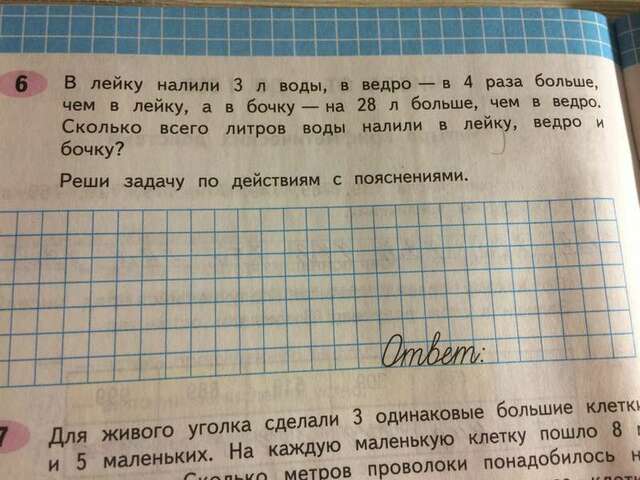 6 В лейку налили 3 л воды, в ведро — в 4 раза больше,
чем в лейку, а в бочку — на 28 л больше, чем в ведро.
Сколько всего литров воды налили в лейку, ведро и
бочку?
Реши задачу по действиям с пояснениями.
Ответ:
7 Для живого уголка сделали 3 одинаковые большие клетки
и 5 маленьких. На каждую маленькую клетку пошло 8
Сколько метров проволоки понадобилось